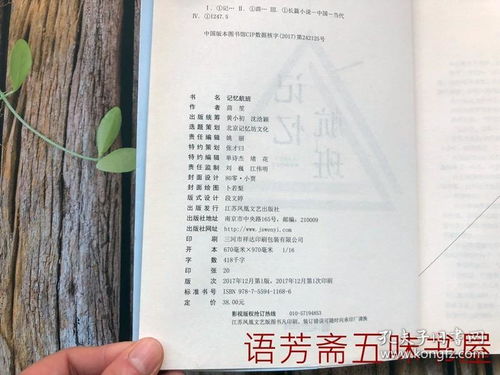 Ⅰ.①记… Ⅱ.①茴… Ⅲ.①长篇小说-中国-当代
Ⅳ.①I247.5
中国版本图书馆CIP数据核字(2017)第242125号
书 名 记忆航班
著 者 茴笙
出版统筹 黄小初 沈洛颖
选题策划 北京记忆坊文化
责任编辑 姚丽
特约策划 张才日
特约编辑 单诗杰 绪花
责任监制 刘巍 江伟明
封面设计 80零·小贾
封面绘图 卜若梨
版式设计 段文婷
出版发行 江苏凤凰文艺出版社
出版社地址 南京市中央路165号,邮编:210009
出版社网址 http://www.jswenyi.com
印 刷 三河市祥达印刷包装有限公司
开 本 670毫米×970毫米 1/16
字 数 418千字
印 张 20
版 次 2017年12月第1版,2017年12月第1次印刷
标准书号 ISBN 978-7-5594-1168-6
定 价 38.00元
影视版权抢订热线 010-57194853
江苏凤凰文艺版图书凡印刷、装订错误可随时向承印厂调换
语芳斋五味书屋
孔夫子旧书网
www.kongfz.com